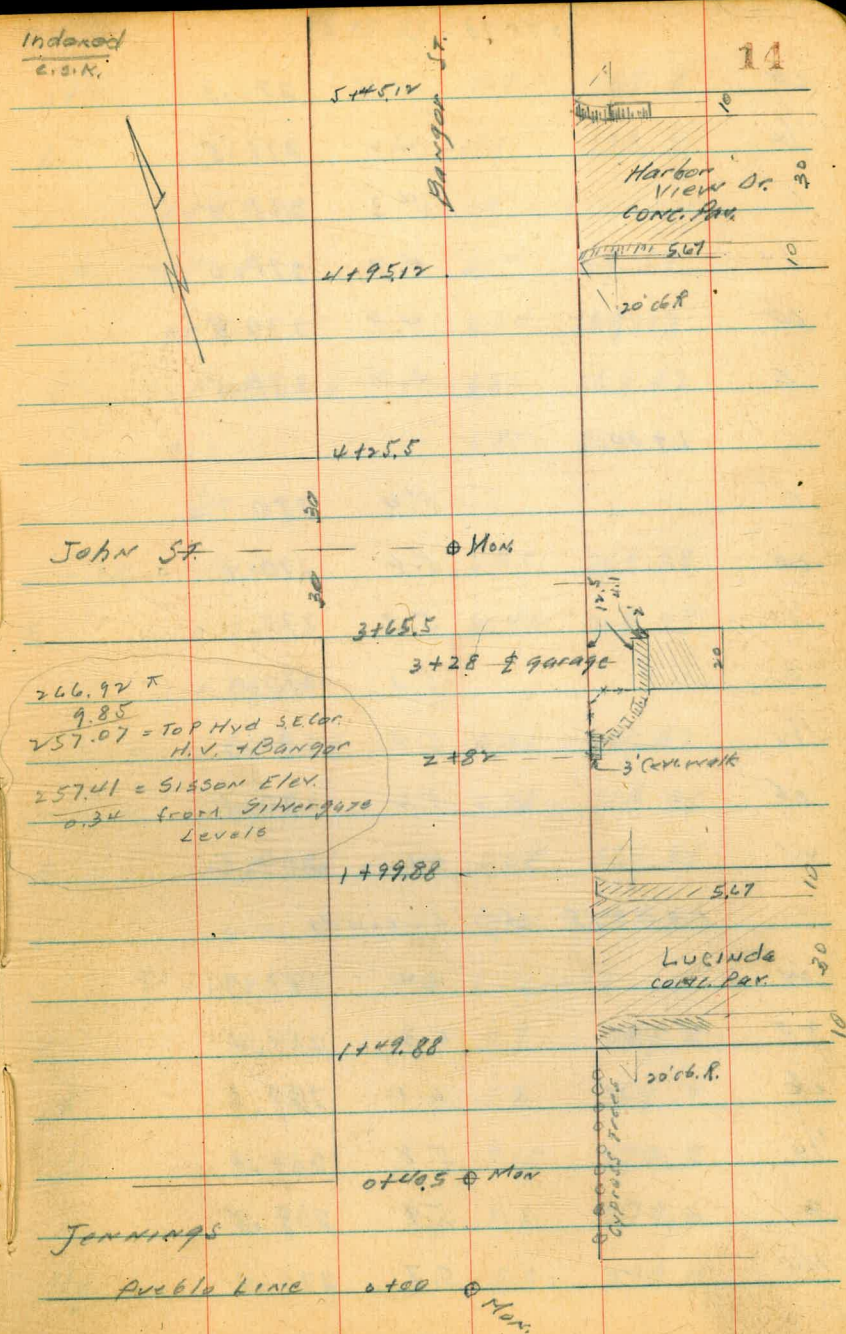 Indexed
C.S.K.
14
Bangor St.
5+45.12
10
Harbor
View Dr.
Conc. Pav.
30
5.67
10
4+95.12
20' cb R
4+25.5
30
John St.
Mon.
30
12.5
4.1
2'
3+65.5
3+28 ⅊ garage
20
266.92 π
9.85
257.07 = Top Hyd S.E. Cor.
H.V. + Bangor
257.41 = Sisson Elev.
0.34 from Silvergate
Levels
2+82
3' Cem. walk
1+99.88
5.67
10
Lucinda
Conc. Pav.
30
10
1+49.88
20' cb. R.
Cypress Trees
0+40.5 Mon
Jennings
Pueblo Line 0+00
Mon.